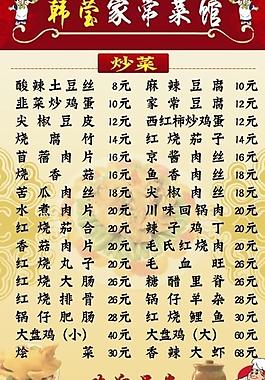 韩莹家常菜馆
炒菜
酸辣土豆丝 8元 麻辣豆腐 10元
韭菜炒鸡蛋 10元 家常豆腐 12元
尖椒豆皮 12元 西红柿炒鸡蛋 12元
烧腐竹 14元 红烧茄子 14元
苜蓿肉片 16元 京酱肉丝 18元
烧香菇 16元 鱼香肉丝 16元
苦瓜肉丝 18元 尖椒肉丝 16元
水煮肉片 20元 川味回锅肉 20元
红烧茄合 20元 辣子鸡丁 20元
香菇肉片 20元 毛氏红烧肉 20元
红烧丸子 20元 毛血旺 20元
红烧大肠 26元 糖醋里脊 26元
红烧排骨 28元 锅仔羊杂 28元
锅仔肥肠 28元 红烧鲤鱼 30元
大盘鸡（小） 40元 大盘鸡（大） 60元
烩菜 30元 香辣大虾 68元